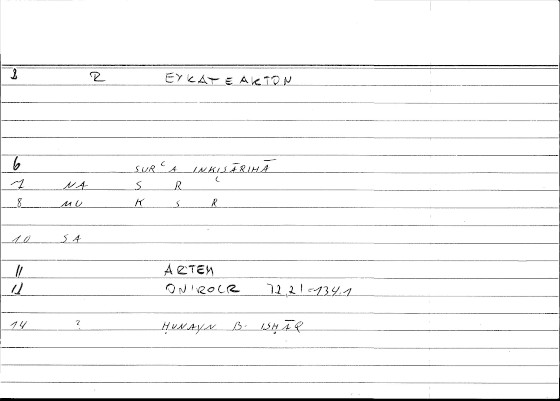 8 R EYKATEAKTON
6 SURʿA INKISĀRIHĀ
7 NA S R ʿ
8 MU K S R
10 SA
11 ARTEM
12 ONIROCR 12.21=134.1
14 ? ḤUNAYN B. ISḤĀQ